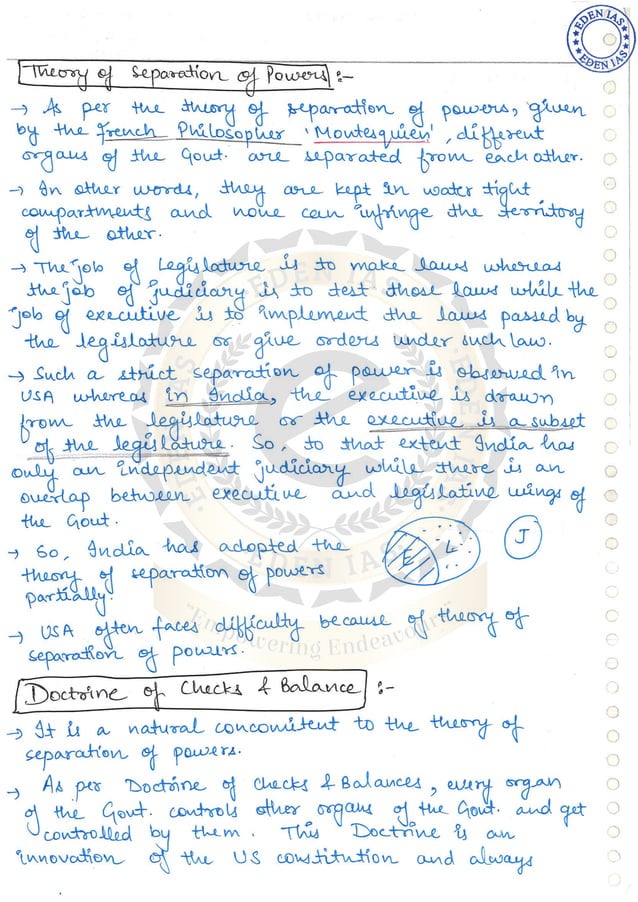 EDEN IAS
EDEN IAS
Theory of Separation of Powers :-
→ As per the theory of separation of powers, given
by the French Philosopher 'Montesquieu', different
organs of the Govt. are separated from each other.
→ In other words, they are kept in water tight
compartments and none can infringe the territory
of the other.
→ The job of Legislature is to make laws whereas
the job of judiciary is to test those laws while the
job of executive is to implement the laws passed by
the legislature or give orders under such law.
→ Such a strict separation of power is observed in
USA whereas in India, the executive is drawn
from the legislature or the executive is a subset
of the legislature. So, to that extent India has
only an independent judiciary while there is an
overlap between executive and legislative wings of
the Govt.
→ So, India has adopted the
theory of separation of powers
partially.
E L J
→ USA often faces difficulty because of theory of
separation of powers.
Doctrine of Checks & Balance :-
→ It is a natural concomitent to the theory of
separation of powers.
→ As per Doctrine of Checks & Balances, every organ
of the Govt. controls other organs of the Govt. and get
controlled by them. This Doctrine is an
innovation of the US constitution and always
EDEN IAS
EDEN IAS
EDEN IAS
EDEN IAS
"Empowering Endeavour"